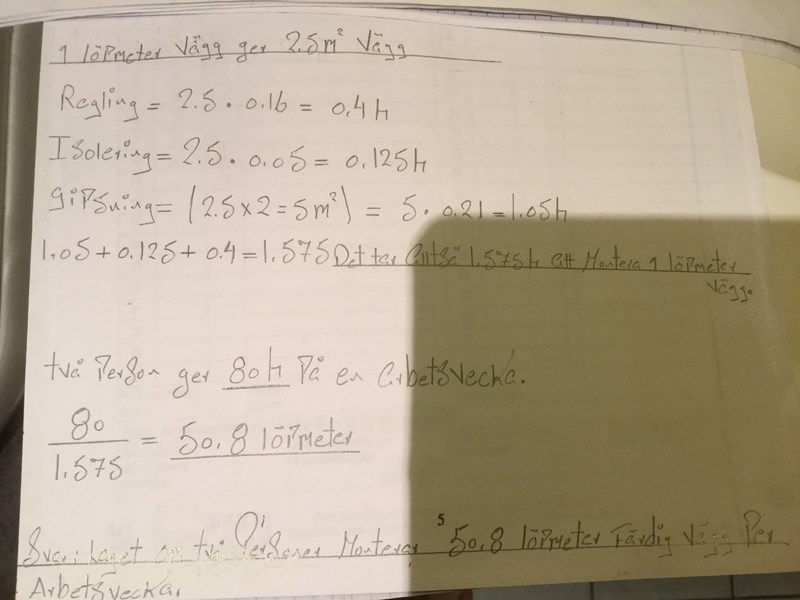 1 löpmeter Vägg ger 2.5m² Vägg
Regling = 2.5 · 0.16 = 0.4h
Isolering = 2.5 · 0.05 = 0.125h
gipsning = (2.5x2=5m²) = 5 · 0.21 = 1.05h
1.05 + 0.125 + 0.4 = 1.575 Det tar alltså 1.575h att Montera 1 löpmeter
Vägg.
två Person ger 80h på en arbetsvecka.
80
1.575
= 50.8 löpmeter
5
Svar: Laget om två Personer Monterar 50.8 löpmeter Färdig Vägg Per
Arbetsvecka.